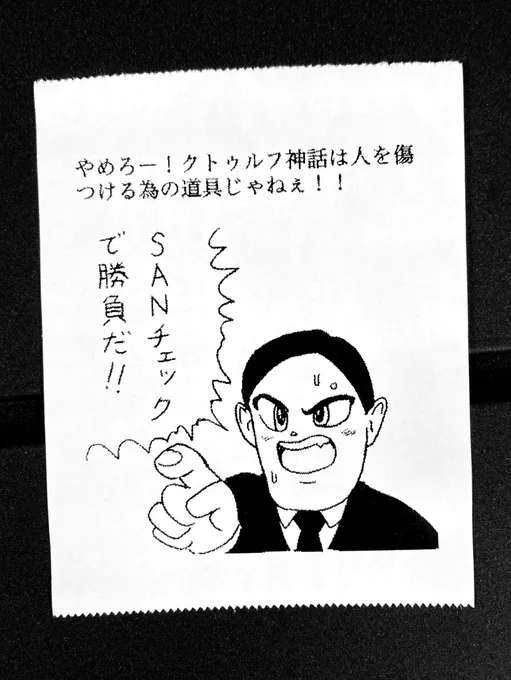 やめろー！クトゥルフ神話は人を傷
つける為の道具じゃねぇ！！
SANチェック
で勝負だ!!